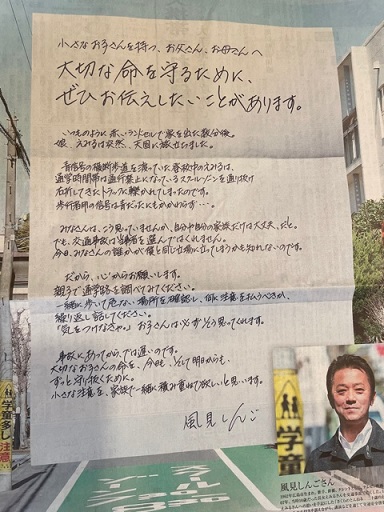 小さなお子さんを持つ、お父さん、お母さんへ
大切な命を守るために、
ぜひお伝えしたいことがあります。
いつものように赤いランドセルで家を出た数分後。
娘、えみるは突然、天国に旅立ちました。
青信号の横断歩道を渡っていた登校中のえみるは、
通学時間帯は通行禁止になっているスクールゾーンを通り抜け
右折してきたトラックに轢かれてしまったのです。
歩行者用の信号は青だったにもかかわらず…。
みなさんは、こう思っていませんか、自分や自分の家族だけは大丈夫、だと。
でも、交通事故は当事者を選んではくれません。
今日、みなさんの誰かが僕と同じ立場に立ってしまうかも知れないのです。
だから、心からお願いします。
親子で通学路を調べてみてください。
一緒に歩いて危ない場所を確認し、何に注意を払うべきか、
繰り返し話してください。
「気をつけなきゃ。」お子さんは必ずそう思ってくれます。
事故にあってからでは遅いのです。
大切なお子さんの命を、今日も、そして明日からも
ずっと守り抜くために。
小さな注意を、家族で一緒に積み重ねて欲しいと思います。
風見しんご
学童多し
注意
スクール
ゾーン
学童
風見しんごさん